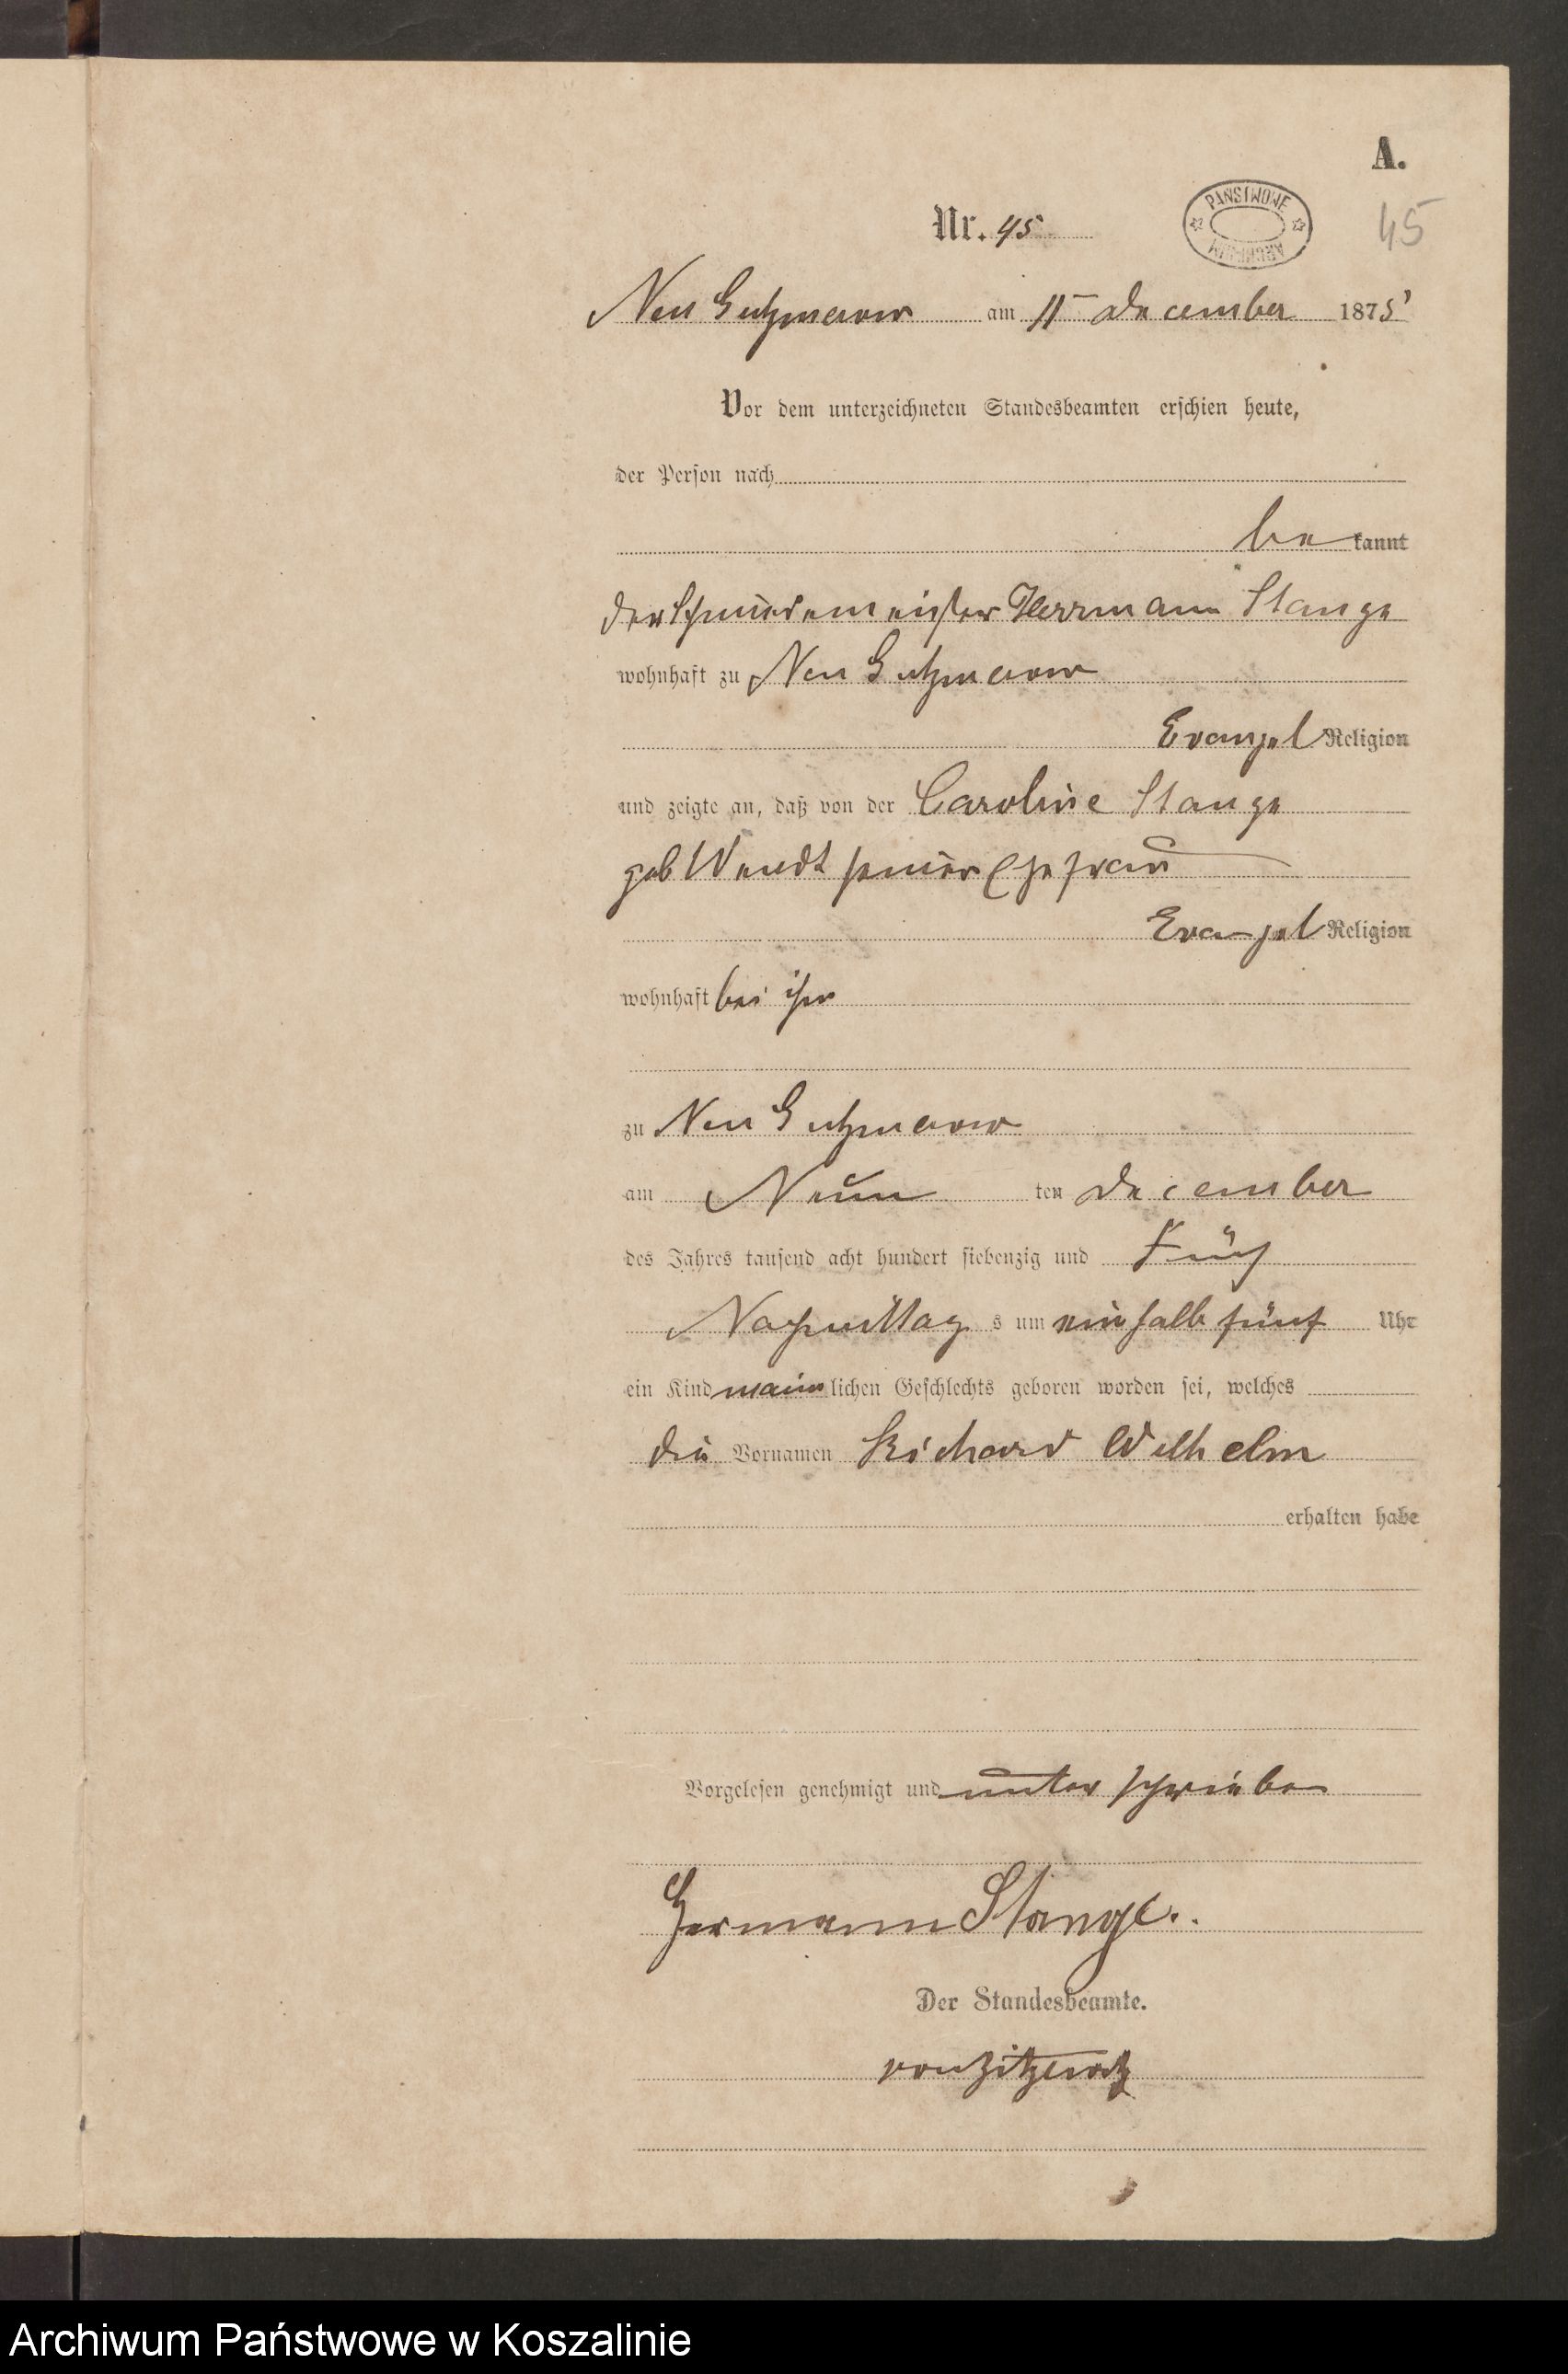 A.
Nr. 45
PAŃSTWOWE
ARCHIWUM
45
Neu Gutzmerow am 11 December 1875
Vor dem unterzeichneten Standesbeamten erschien heute,
der Person nach
be kannt
der Schmiedemeister Herrmann Stange
wohnhaft zu Neu Gutzmerow
Evangel Religion
und zeigte an, daß von der Caroline Stange
geb Wendt seiner Ehefrau
Evangel Religion
wohnhaft bei ihm
zu Neu Gutzmerow
am Neun ten December
des Jahres tausend acht hundert siebenzig und Fünf
Nachmittag s um ein halb fünf Uhr
ein Kind männ lichen Geschlechts geboren worden sei, welches
die Vornamen Richard Wilhelm
erhalten habe
Vorgelesen genehmigt und unterschrieben
Hermann Stange.
Der Standesbeamte.
von Zitzewitz
Archiwum Państwowe w Koszalinie